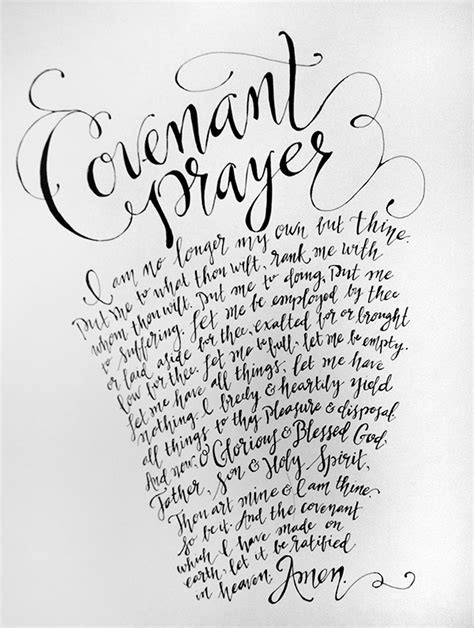 Covenant
prayer
I am no longer my own but thine.
Put me to what thou wilt, rank me with
whom thou wilt. Put me to doing, put me
to suffering. Let me be employed by thee
or laid aside for thee, exalted for or brought
low for thee. Let me be full, let me be empty.
Let me have all things, let me have
nothing. I freely & heartily yield
all things to thy pleasure & disposal.
And now, O Glorious & Blessed God,
Father, Son & Holy Spirit,
Thou art mine & I am thine.
So be it. And the covenant
which I have made on
earth, let it be ratified
in heaven. Amen.